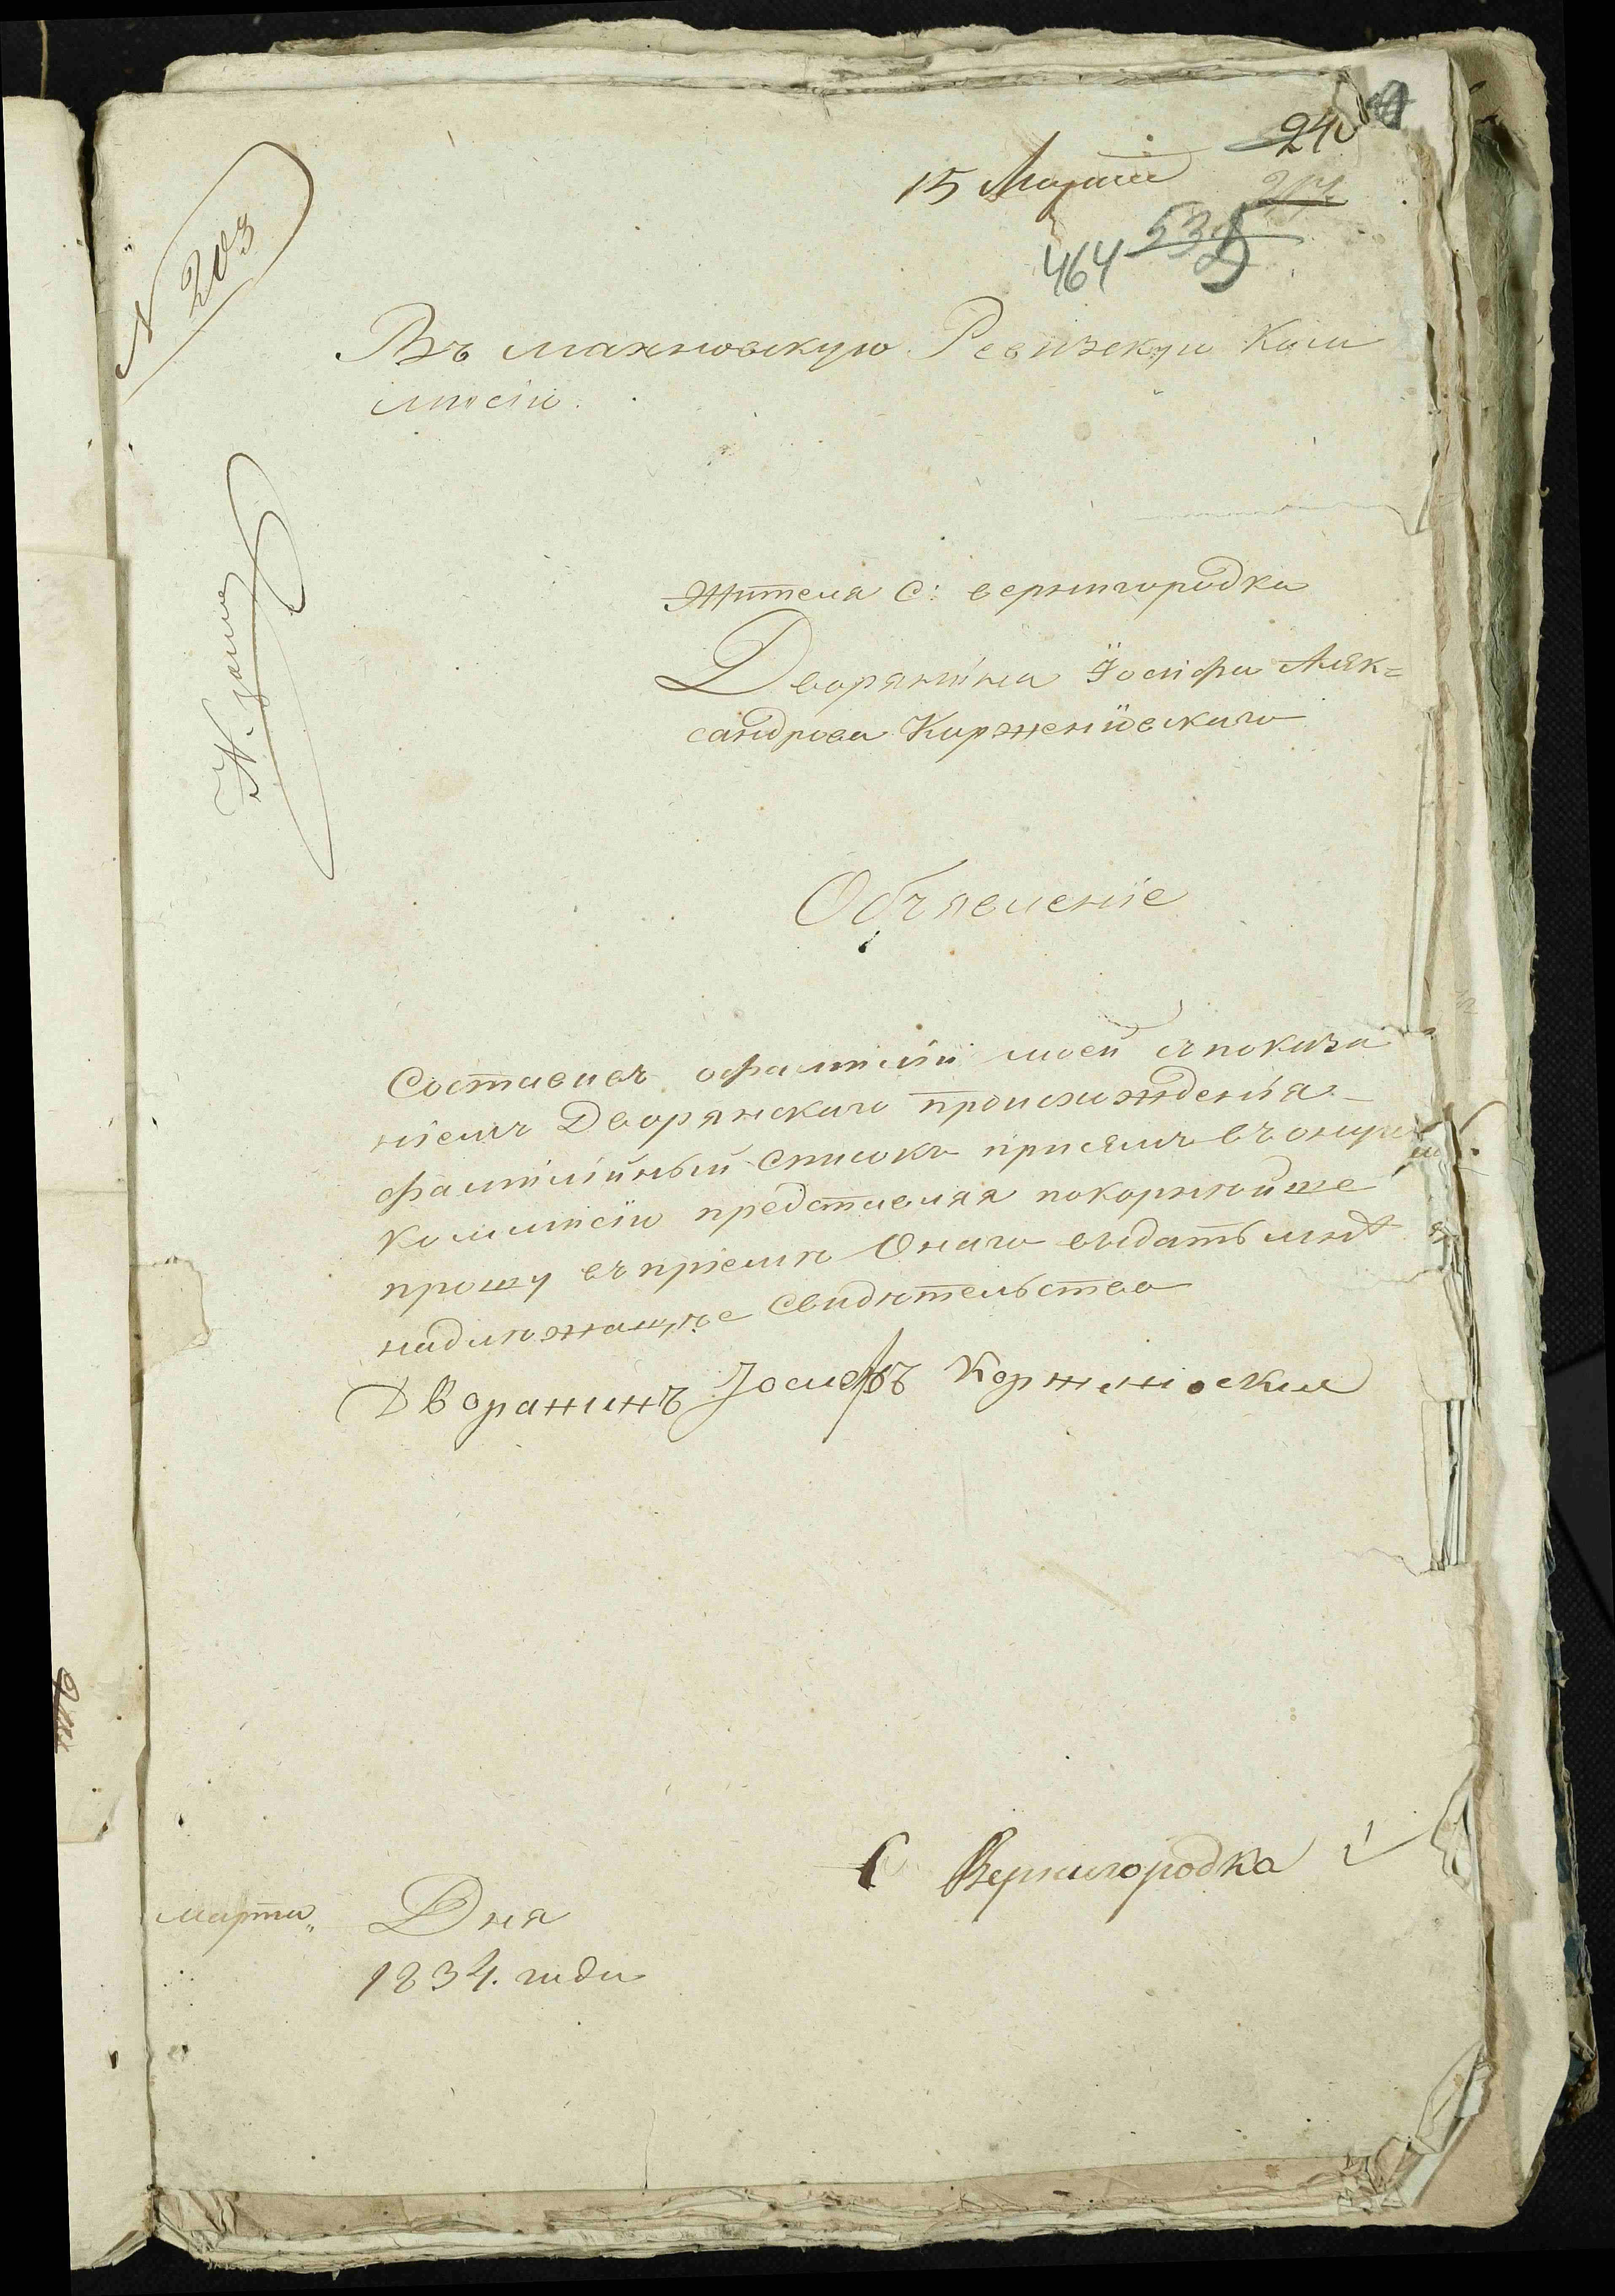 240
15 Марта
217
535
464
N 203
Въ махновскую Ревизскую Ком
мисію.
Жителя С: вернигородки
Дворянина Іосифа Алек=
сандрова Корженіовскаго
Объявленіе
Составивъ офамиліи моей съпоказа
ніемъ Дворянскаго происхожденія
фамилійный списокъ присемъ въ оную
Коммисію представляя покорнюйше
прошу въпріемю Онаго выдать мнѣ
надлюжащуе Свидютельство
Дворанинъ Іосифъ Корженіовски
С Вернигородка
марта „ Дня
1834. года